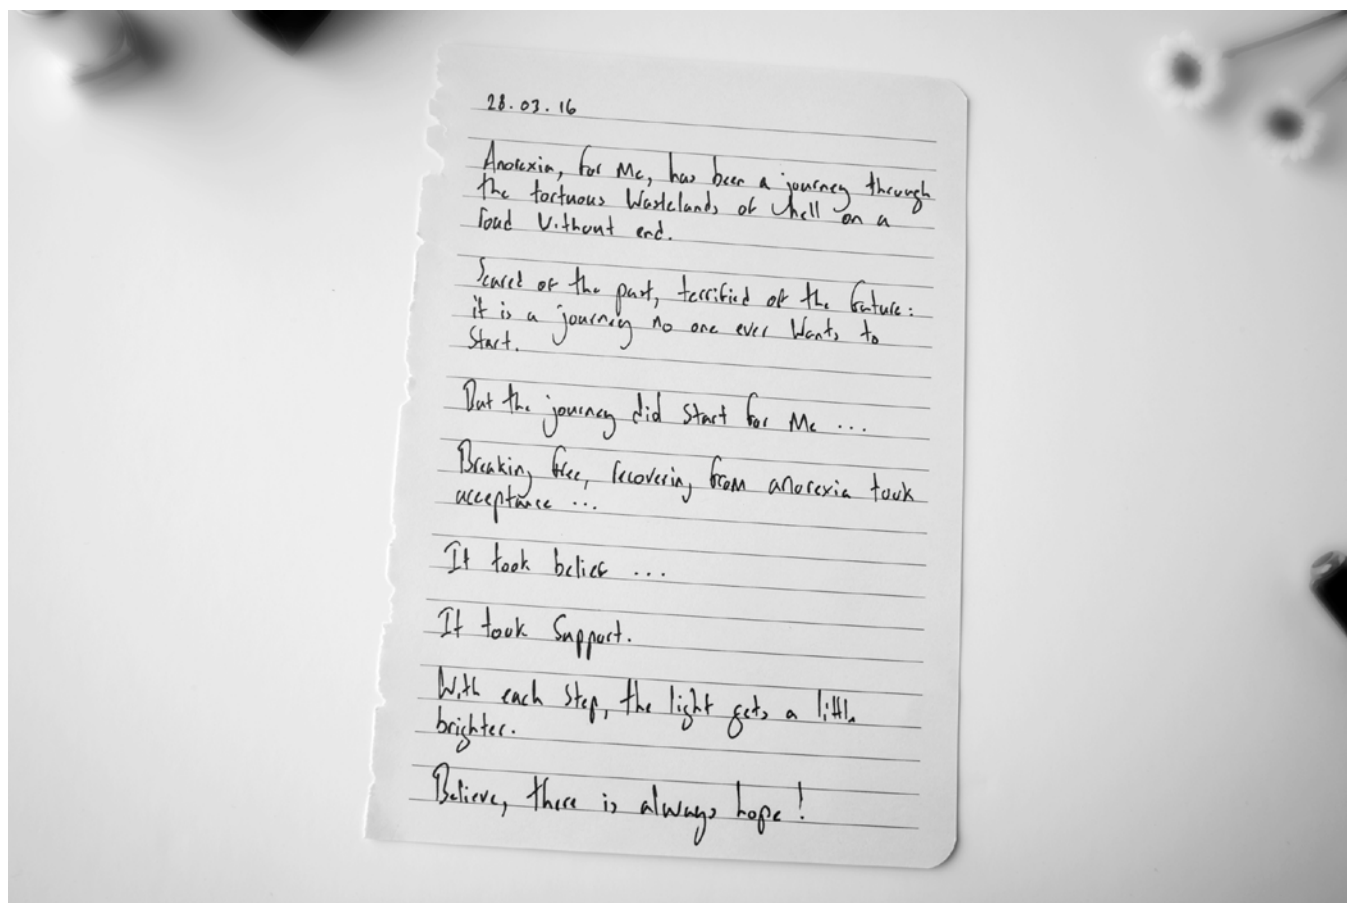 28.03.16
Anorexia, for Me, has been a journey through
the tortuous Wastelands of hell on a
road Without end.
Scared of the past, terrified of the future:
it is a journey no one ever Wants to
Start.
But the journey did Start for Me ...
Breaking free, recovering from anorexia took
acceptance ...
It took belief ...
It took Support.
With each Step, the light gets a little
brighter.
Believe, there is always hope!